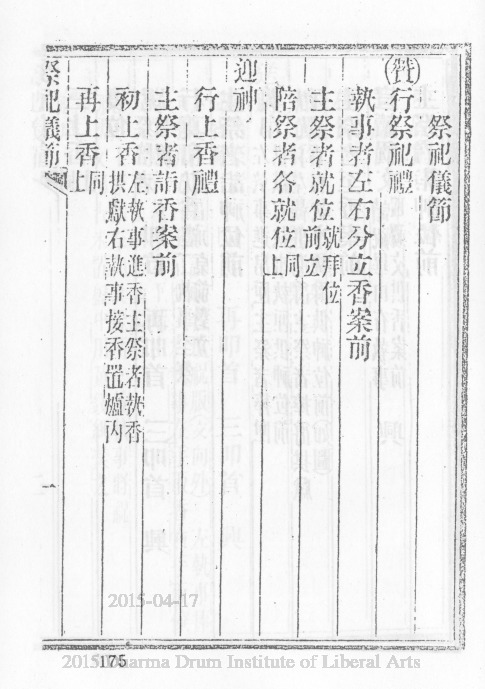 祭祀儀節
(贊)行祭祀禮
執事者左右分立香案前
主祭者就位就拜位前立
陪祭者各就位同上
迎神
行上香禮
主祭者詣香案前
初上香左執事進香主祭者執香拱獻右執事接香置爐内
再上香同上
祭祀儀節
一
2015-04-17
175
2015 Dharma Drum Institute of Liberal Arts